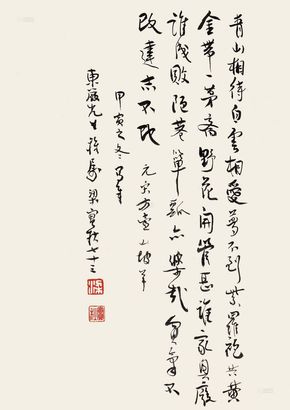 青山相待白雲相愛夢不到紫羅袍共黃
金帶一茅齋野花開管甚誰家興廢
誰成敗陋巷簞瓢亦樂哉貧氣不
改達志不改 元宋方壺山坡羊
甲寅之冬寫奉
東先生 梁實秋七十三